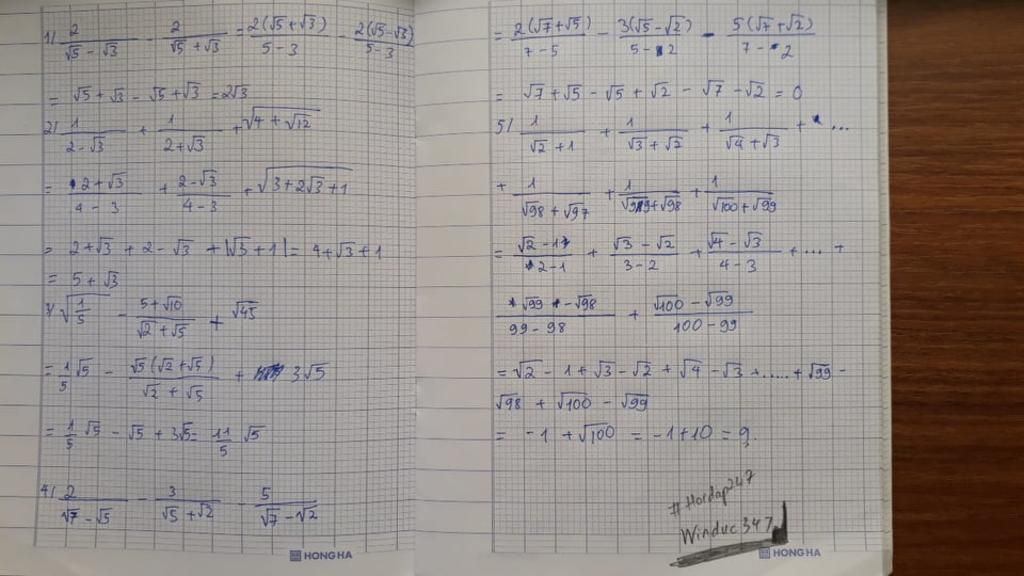 1) 2/(√5 - √3) - 2/(√5 + √3) = 2(√5 + √3)/(5 - 3) - 2(√5 - √3)/(5 - 3)
= √5 + √3 - √5 + √3 = 2√3
2) 1/(2 - √3) + 1/(2 + √3) + √(4 + √12)
= (2 + √3)/(4 - 3) + (2 - √3)/(4 - 3) + √(3 + 2√3 + 1)
= 2 + √3 + 2 - √3 + |√3 + 1| = 4 + √3 + 1
= 5 + √3
3) √(1/5) - (5 + √10)/(√2 + √5) + √45
= 1/5 √5 - √5(√2 + √5)/(√2 + √5) + 3√5
= 1/5 √5 - √5 + 3√5 = 11/5 √5
4) 2/(√7 - √5) - 3/(√5 + √2) - 5/(√7 - √2)
HONG HA
= 2(√7 + √5)/(7 - 5) - 3(√5 - √2)/(5 - 2) - 5(√7 + √2)/(7 - 2)
= √7 + √5 - √5 + √2 - √7 - √2 = 0
5) 1/(√2 + 1) + 1/(√3 + √2) + 1/(√4 + √3) + ...
+ 1/(√98 + √97) + 1/(√99 + √98) + 1/(√100 + √99)
= (√2 - 1)/(2 - 1) + (√3 - √2)/(3 - 2) + (√4 - √3)/(4 - 3) + ... +
(√99 - √98)/(99 - 98) + (√100 - √99)/(100 - 99)
= √2 - 1 + √3 - √2 + √4 - √3 + ..... + √99 -
√98 + √100 - √99
= -1 + √100 = -1 + 10 = 9.
#Hoidap247
Winduc347
HONG HA